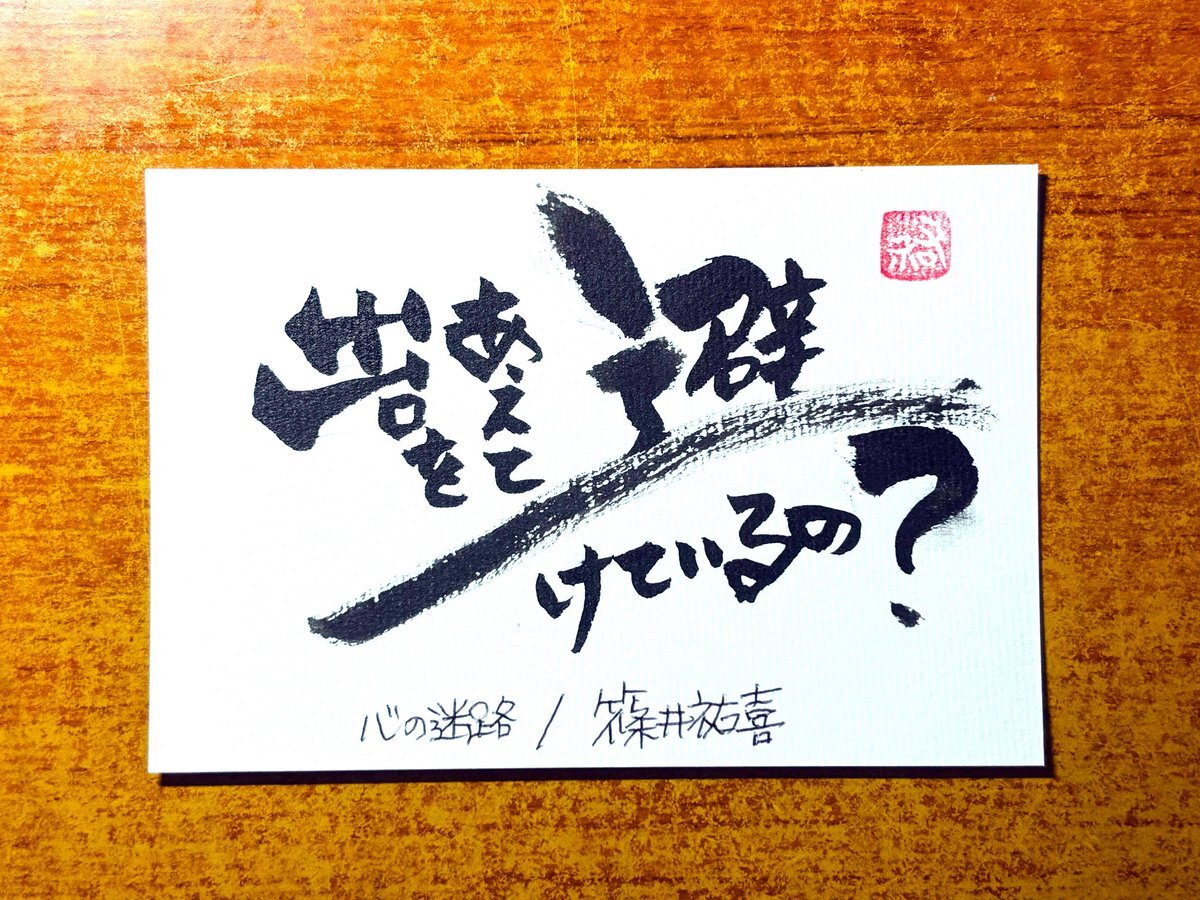 出口を
あえて
避
けているの?
心の迷路 / 篠井祐喜